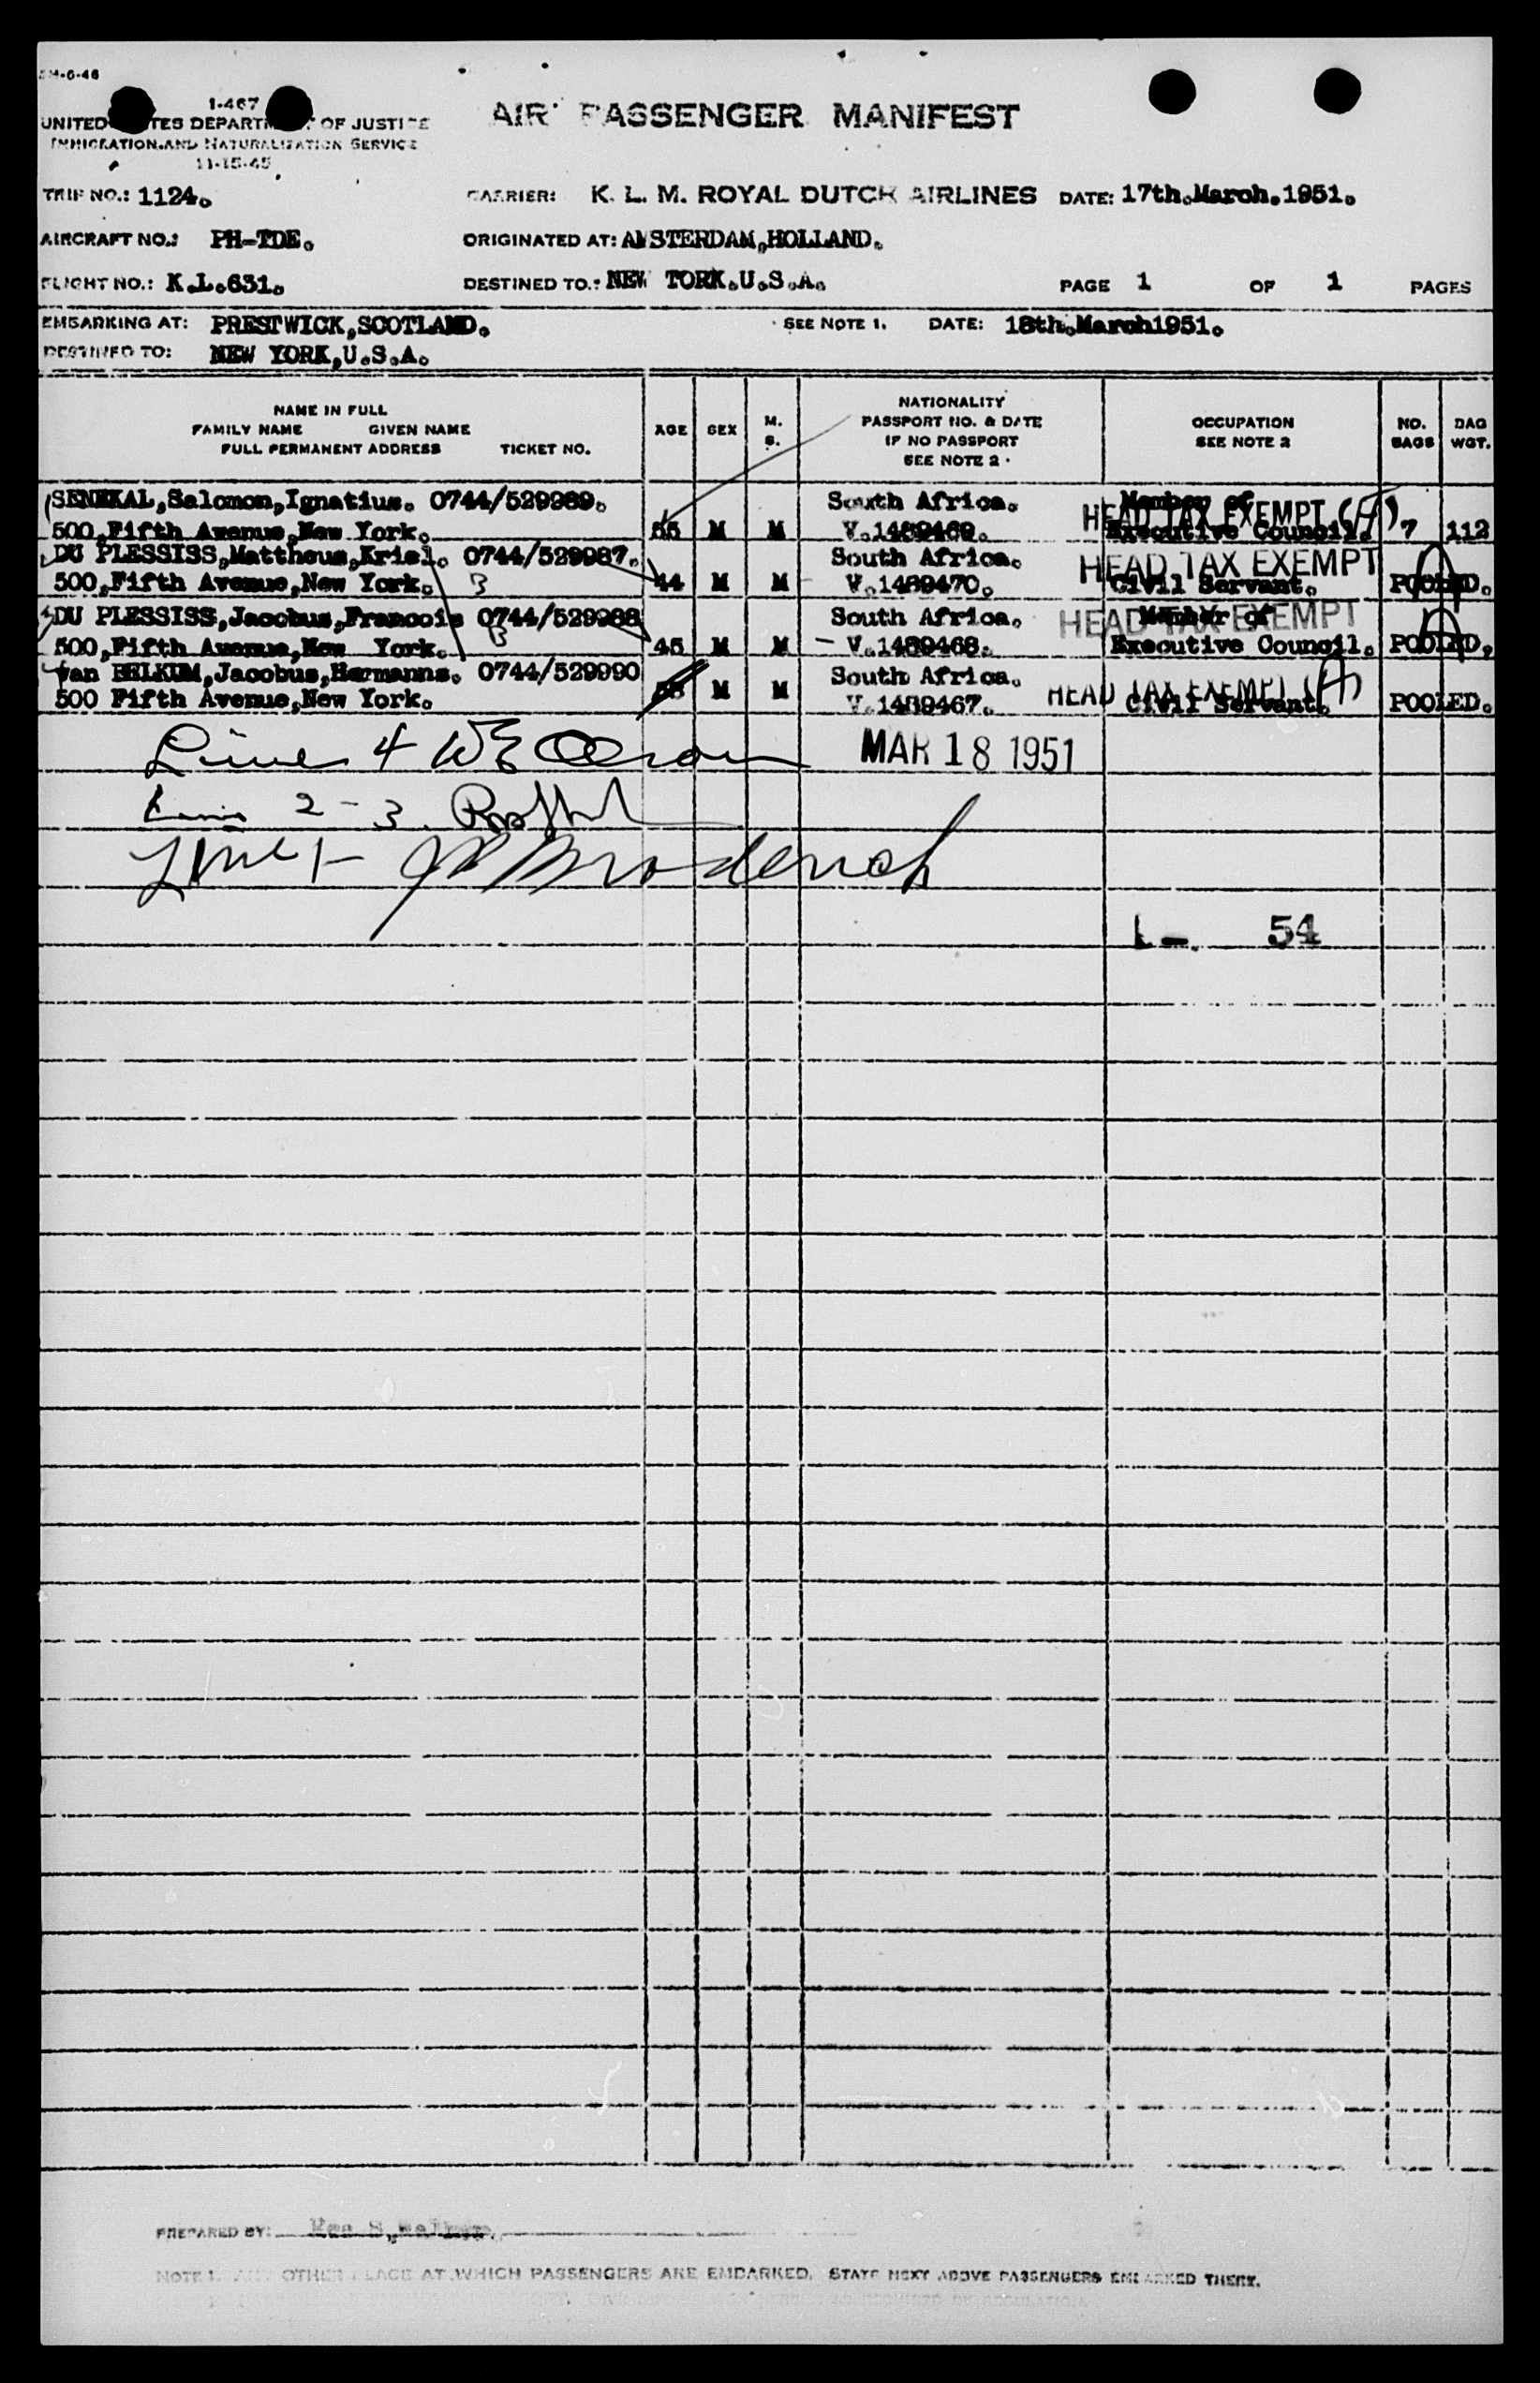 1-467
UNITED STATES DEPARTMENT OF JUSTICE
IMMIGRATION AND NATURALIZATION SERVICE
11-15-45
AIR PASSENGER MANIFEST
TRIP NO.: 1124. CARRIER: K. L. M. ROYAL DUTCH AIRLINES DATE: 17th.March.1951.
AIRCRAFT NO.: PH-TDE. ORIGINATED AT: AMSTERDAM,HOLLAND.
FLIGHT NO.: K.L.631. DESTINED TO.: NEW TORK.U.S.A. PAGE 1 OF 1 PAGES
EMBARKING AT: PRESTWICK,SCOTLAND. SEE NOTE 1. DATE: 18th.March1951.
DESTINED TO: NEW YORK,U.S.A.
NAME IN FULL
FAMILY NAME GIVEN NAME
FULL PERMANENT ADDRESS TICKET NO.
AGE
SEX
M.
S.
NATIONALITY
PASSPORT NO. & DATE
IF NO PASSPORT
SEE NOTE 2
OCCUPATION
SEE NOTE 2
NO.
BAGS
BAG
WGT.
SENEKAL,Salomon,Ignatius. 0744/529989. South Africa. Member of HEAD TAX EXEMPT (H)
500,Fifth Avenue,New York. 55 M M V.1489469. Executive Council. 7 112
DU PLESSISS,Mattheus,Kriel. 0744/529987. South Africa. HEAD TAX EXEMPT
500,Fifth Avenue,New York. 3 44 M M V.1489470. Civil Servant. POOLED.
DU PLESSISS,Jacobus,Francois 0744/529988 South Africa. Member of HEAD TAX EXEMPT
500,Fifth Avenue,New York. 3 45 M M V.1489468. Executive Council. POOLED.
van BELKUM,Jacobus,Hermanns. 0744/529990 South Africa. HEAD TAX EXEMPT (H)
500 Fifth Avenue,New York. M M V.1489467. Civil Servant. POOLED.
Line 4 MAR 18 1951
2-3
Line 1- Broderick
1- 54
PREPARED BY:
NOTE 1. ANY OTHER PLACE AT WHICH PASSENGERS ARE EMBARKED, STATE NEXT ABOVE PASSENGERS EMBARKED THERE.